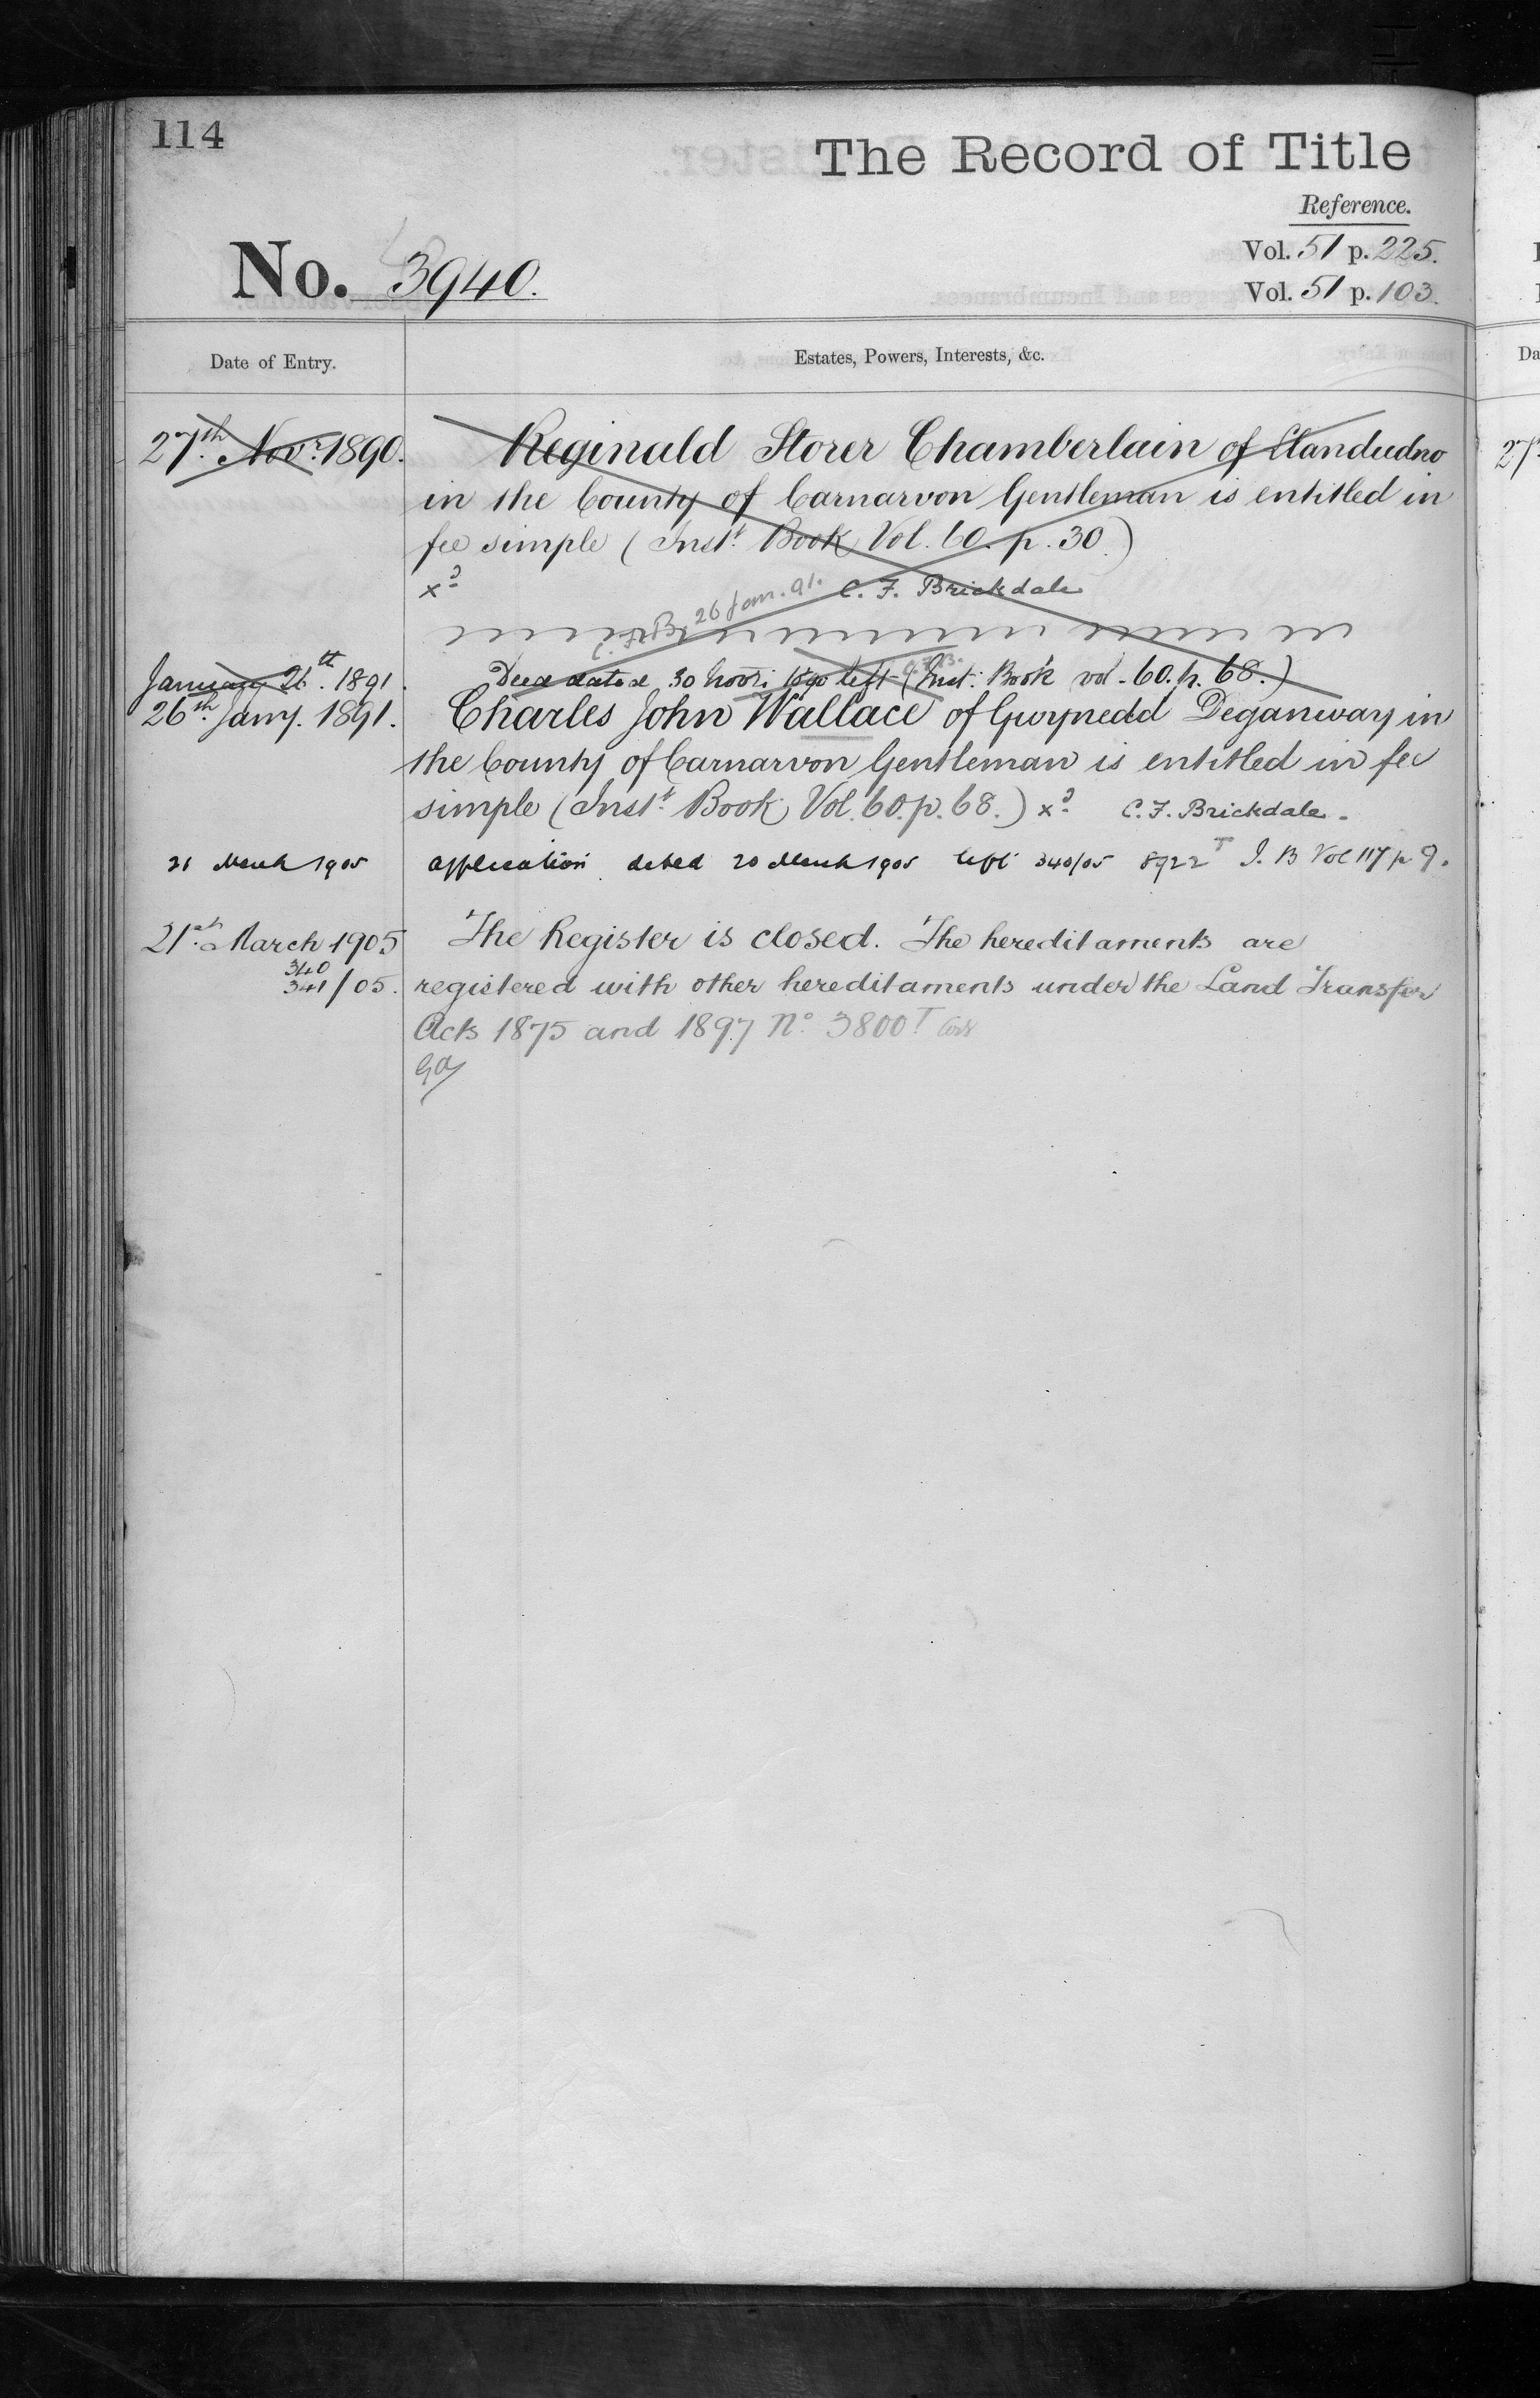 114
The Record of Title
Reference.
Vol. 51 p. 225.
No. 3940.
Vol. 51 p. 103.
Date of Entry.
Estates, Powers, Interests, &c.
27th Novr 1890.
Reginald Storer Chamberlain of Llandudno
in the County of Carnarvon Gentleman is entitled in
fee simple (Instt. Book Vol. 60. p. 30.)
xd C. F. Brickdale
C. F. B. 26 Jan. 91.
January 26th. 1891.
Deed dated 30 Novr: 1890 left (Inst: Book vol. 60. p. 68.)
C.F.B.
26th. Jany. 1891.
Charles John Wallace of Gwynedd Deganway in
the County of Carnarvon Gentleman is entitled in fee
simple (Instt. Book Vol. 60. p. 68.) xd C. F. Brickdale.
21 March 1905
application dated 20 March 1905 left 340/05 8922T I. B Vol 117 p 9.
21st. March 1905
The Register is closed. The hereditaments are
340
341/05.
registered with other hereditaments under the Land Transfer
Acts 1875 and 1897 No. 3800T
27
Da